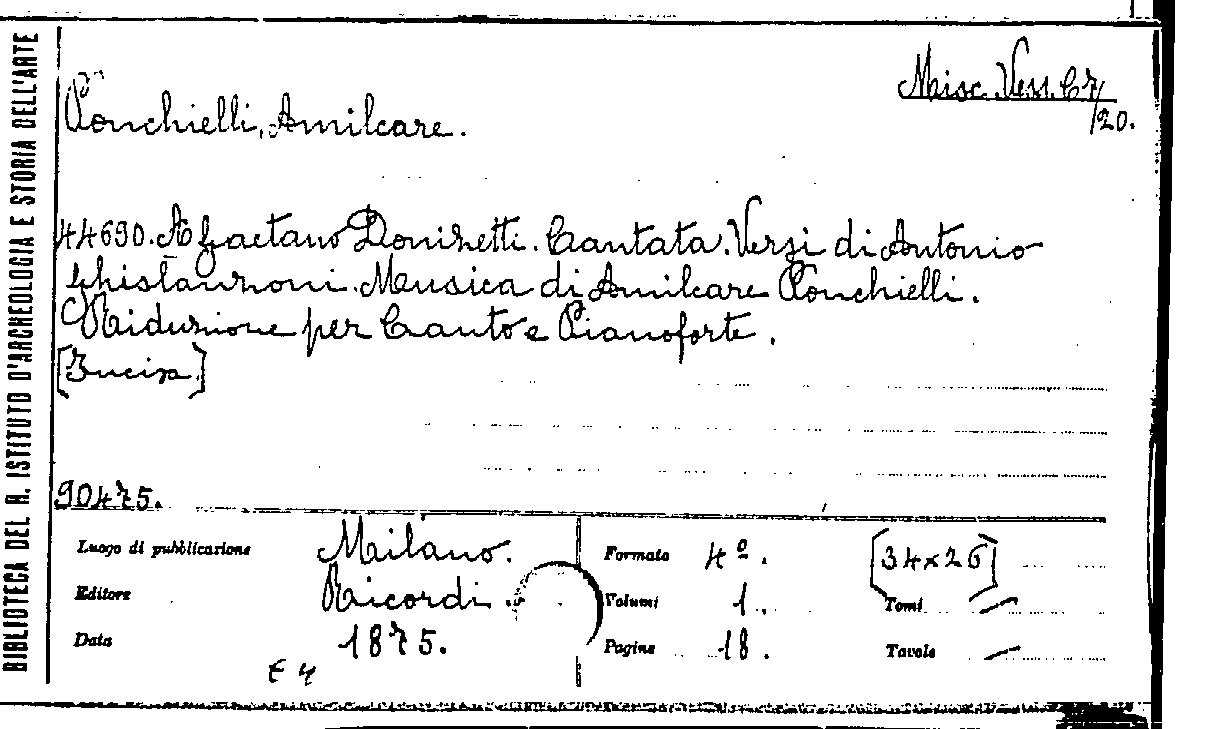 BIBLIOTECA DEL R. ISTITUTO D'ARCHEOLOGIA E STORIA DELL'ARTE
Misc. Vess. C7/20.
Ponchielli, Amilcare.
44690. A Gaetano Donizetti. Cantata. Versi di Antonio
Ghislanzoni. Musica di Amilcare Ponchielli.
Riduzione per Canto e Pianoforte.
90475.
Luogo di pubblicazione Milano. Formato 4º. [34x26]
Editore Ricordi. Volumi 1. Tomi —
Data 1875. Pagine 18. Tavole —